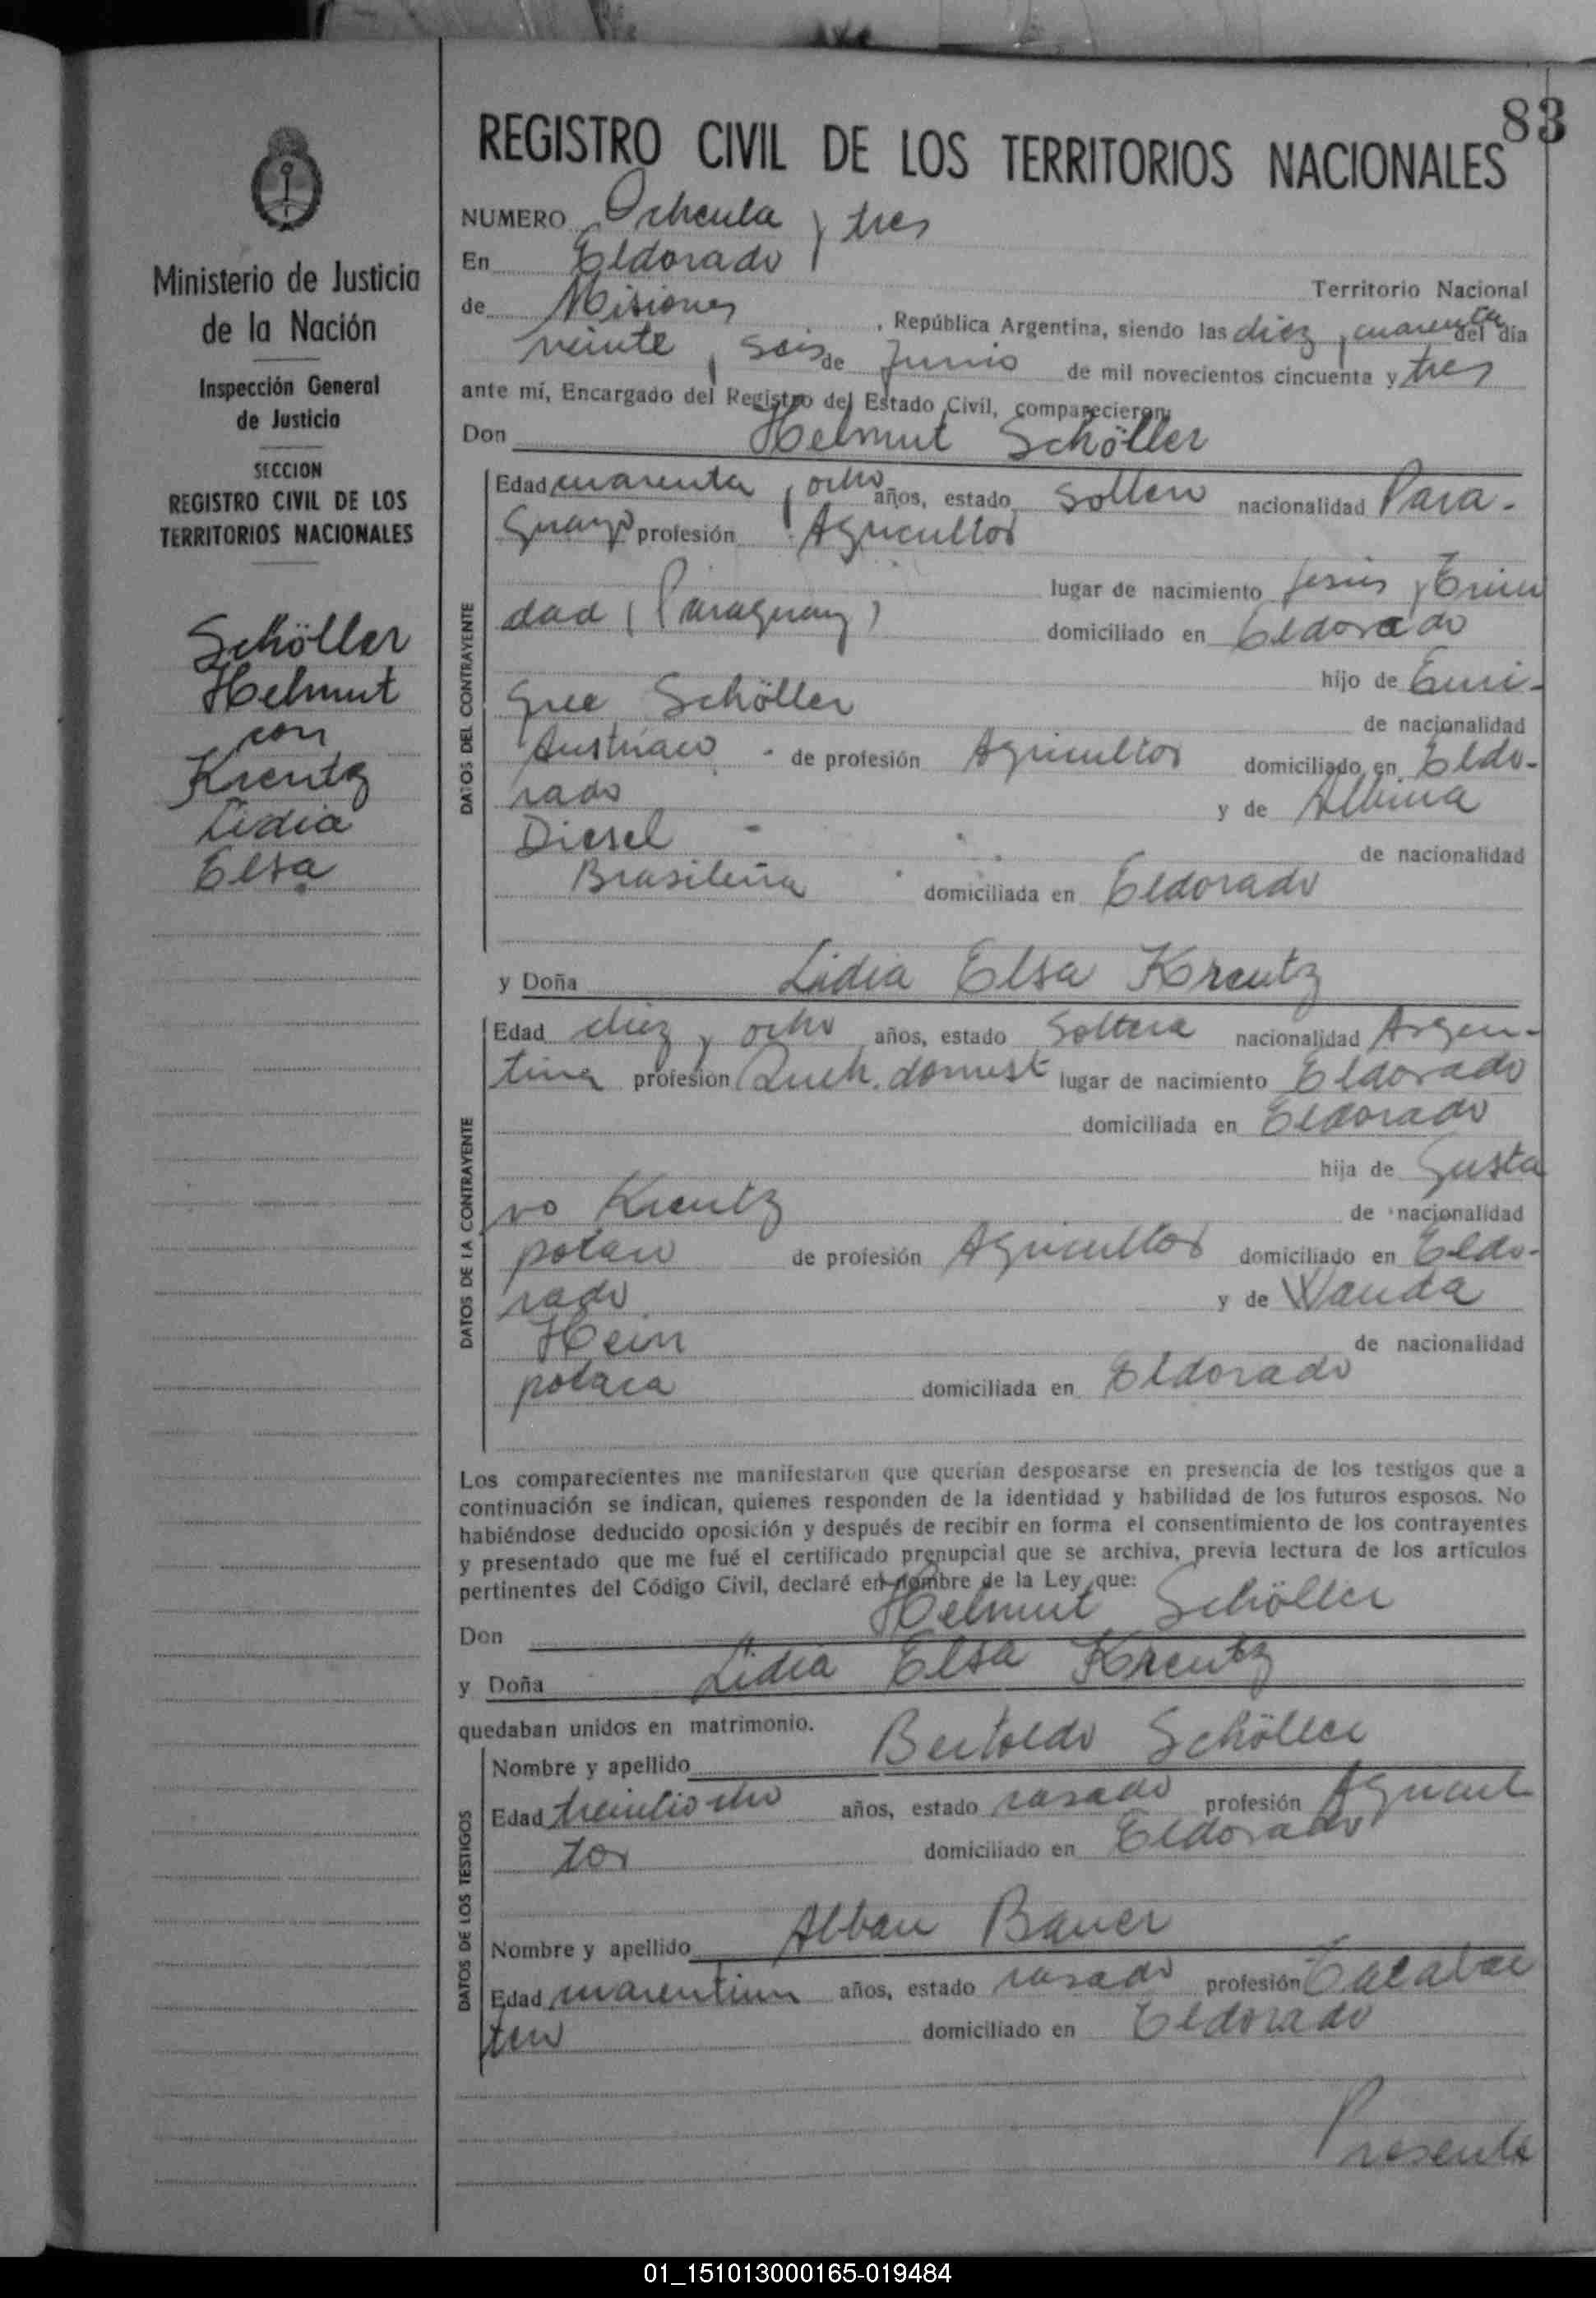 83
REGISTRO CIVIL DE LOS TERRITORIOS NACIONALES
NUMERO Ochenta y tres
En Eldorado
Territorio Nacional
de Misiones, República Argentina, siendo las diez y cuarenta del día
veinte y seis de Junio de mil novecientos cincuenta y tres
ante mí, Encargado del Registro del Estado Civil, comparecieron:
Don Helmut Schöller
Edad cuarenta y ocho años, estado soltero nacionalidad Para-
guayo profesión Agricultor
lugar de nacimiento Jesús y Trini
dad (Paraguay) domiciliado en Eldorado
hijo de
Schöller
de nacionalidad
Austriaco - de profesión Agricultor domiciliado en Eldo-
rado y de Albina
Diesel
de nacionalidad
Brasileña domiciliada en Eldorado
y Doña Lidia Elsa Kreutz
Edad diez y ocho años, estado Soltera nacionalidad Argen-
tina profesión Queh. domest lugar de nacimiento Eldorado
domiciliada en Eldorado
hija de Gusta
vo Kreutz
de nacionalidad
polaco de profesión Agricultor domiciliado en Eldo-
rado y de Wanda
Hein
de nacionalidad
polaca domiciliada en Eldorado
Los comparecientes me manifestaron que querían desposarse en presencia de los testigos que a
continuación se indican, quienes responden de la identidad y habilidad de los futuros esposos. No
habiéndose deducido oposición y después de recibir en forma el consentimiento de los contrayentes
y presentado que me fué el certificado prenupcial que se archiva, previa lectura de los artículos
pertinentes del Código Civil, declaré en nombre de la Ley que:
Don Helmut Schöller
y Doña Lidia Elsa Kreutz
quedaban unidos en matrimonio.
Nombre y apellido Bertoldo Schöller
Edad treintiocho años, estado casado profesión Agricul
tor domiciliado en Eldorado
Nombre y apellido Alban Bauer
Edad cuarentiun años, estado casado profesión
domiciliado en Eldorado
Presente
DATOS DEL CONTRAYENTE
DATOS DE LA CONTRAYENTE
DATOS DE LOS TESTIGOS
Ministerio de Justicia
de la Nación
Inspección General
de Justicia
SECCION
REGISTRO CIVIL DE LOS
TERRITORIOS NACIONALES
Schöller
Helmut
con
Kreutz
Lidia
Elsa
01_151013000165-019484